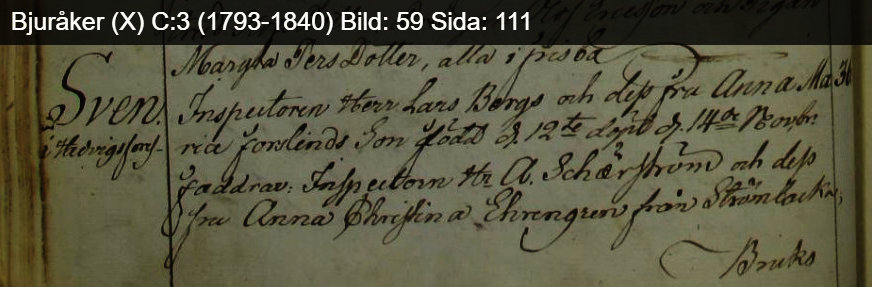 Bjuråker (X) C:3 (1793-1840) Bild: 59 Sida: 111
Margta Pers Dotter, alla i frisbo
Sven.
i Hedvigsfors-
Inspectoren Herr Lars Bergs och dess fru Anna Ma
ria Forslinds Son född d. 12te döpt d. 14de Novbr.
faddrar: Inspectorn Hr A. Schærström och dess
fru Anna Christina Ehrengren från Strömbacka,
Bruks